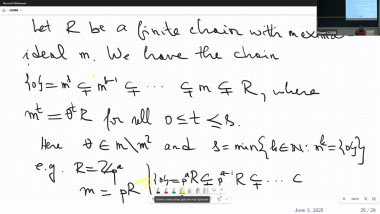 Let R be a finite chain with maximal
ideal m. We have the chain
{0}=m^s ⊊ m^{s-1} ⊊ ... ⊊ m ⊊ R, where
m^t = θ^t R for all 0 ≤ t ≤ s.
Here θ ∈ m\m² and s = min{k∈ℕ: m^k = {0}}
e.g. R = ℤ_{p^a}
m = pR
{0}=p^a R ⊊ p^{a-1} R ⊊ ... ⊂
June 3, 2025
25 / 29